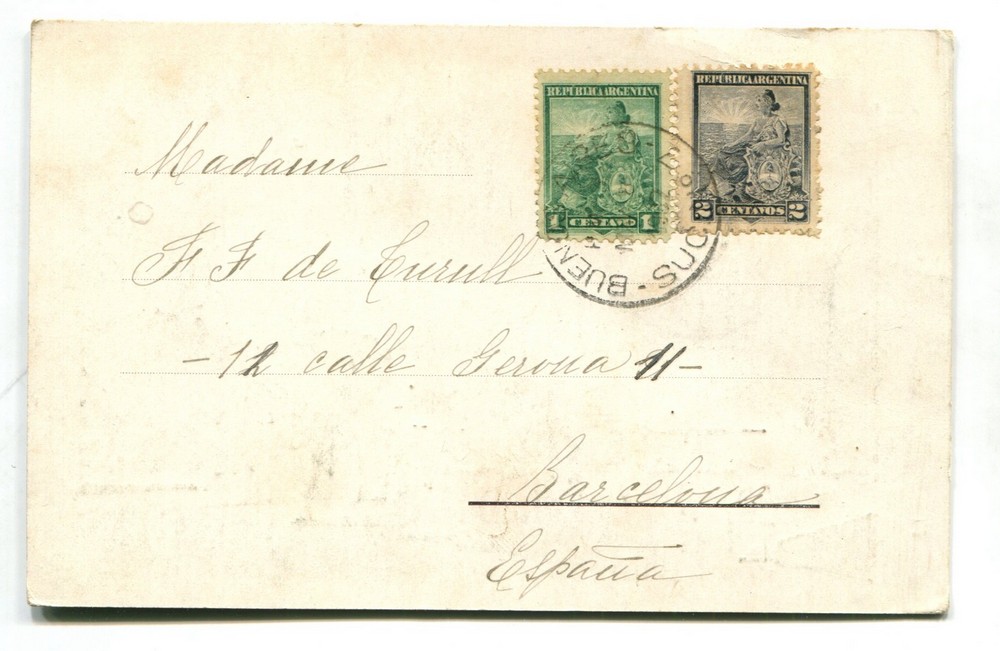 REPUBLICA ARGENTINA
1 CENTAVO 1
REPUBLICA ARGENTINA
2 CENTAVOS 2
SUC
BUEN
Madame
F F de Turull
- 12 calle Gerona 11 -
Barcelona
España